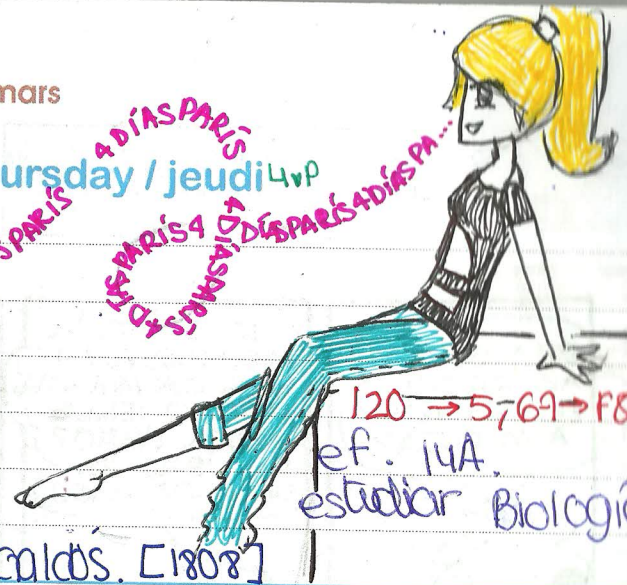 mars
4 DÍAS PARÍS
ursday / jeudi 4vP
S PARÍS 4 DÍAS PARÍS 4 DÍAS PARÍS 4 DÍAS PARÍS 4 DÍAS PA...
120 → 5, 69 → F8
ef. 14A.
estudiar Biologí
caldós. [1808]